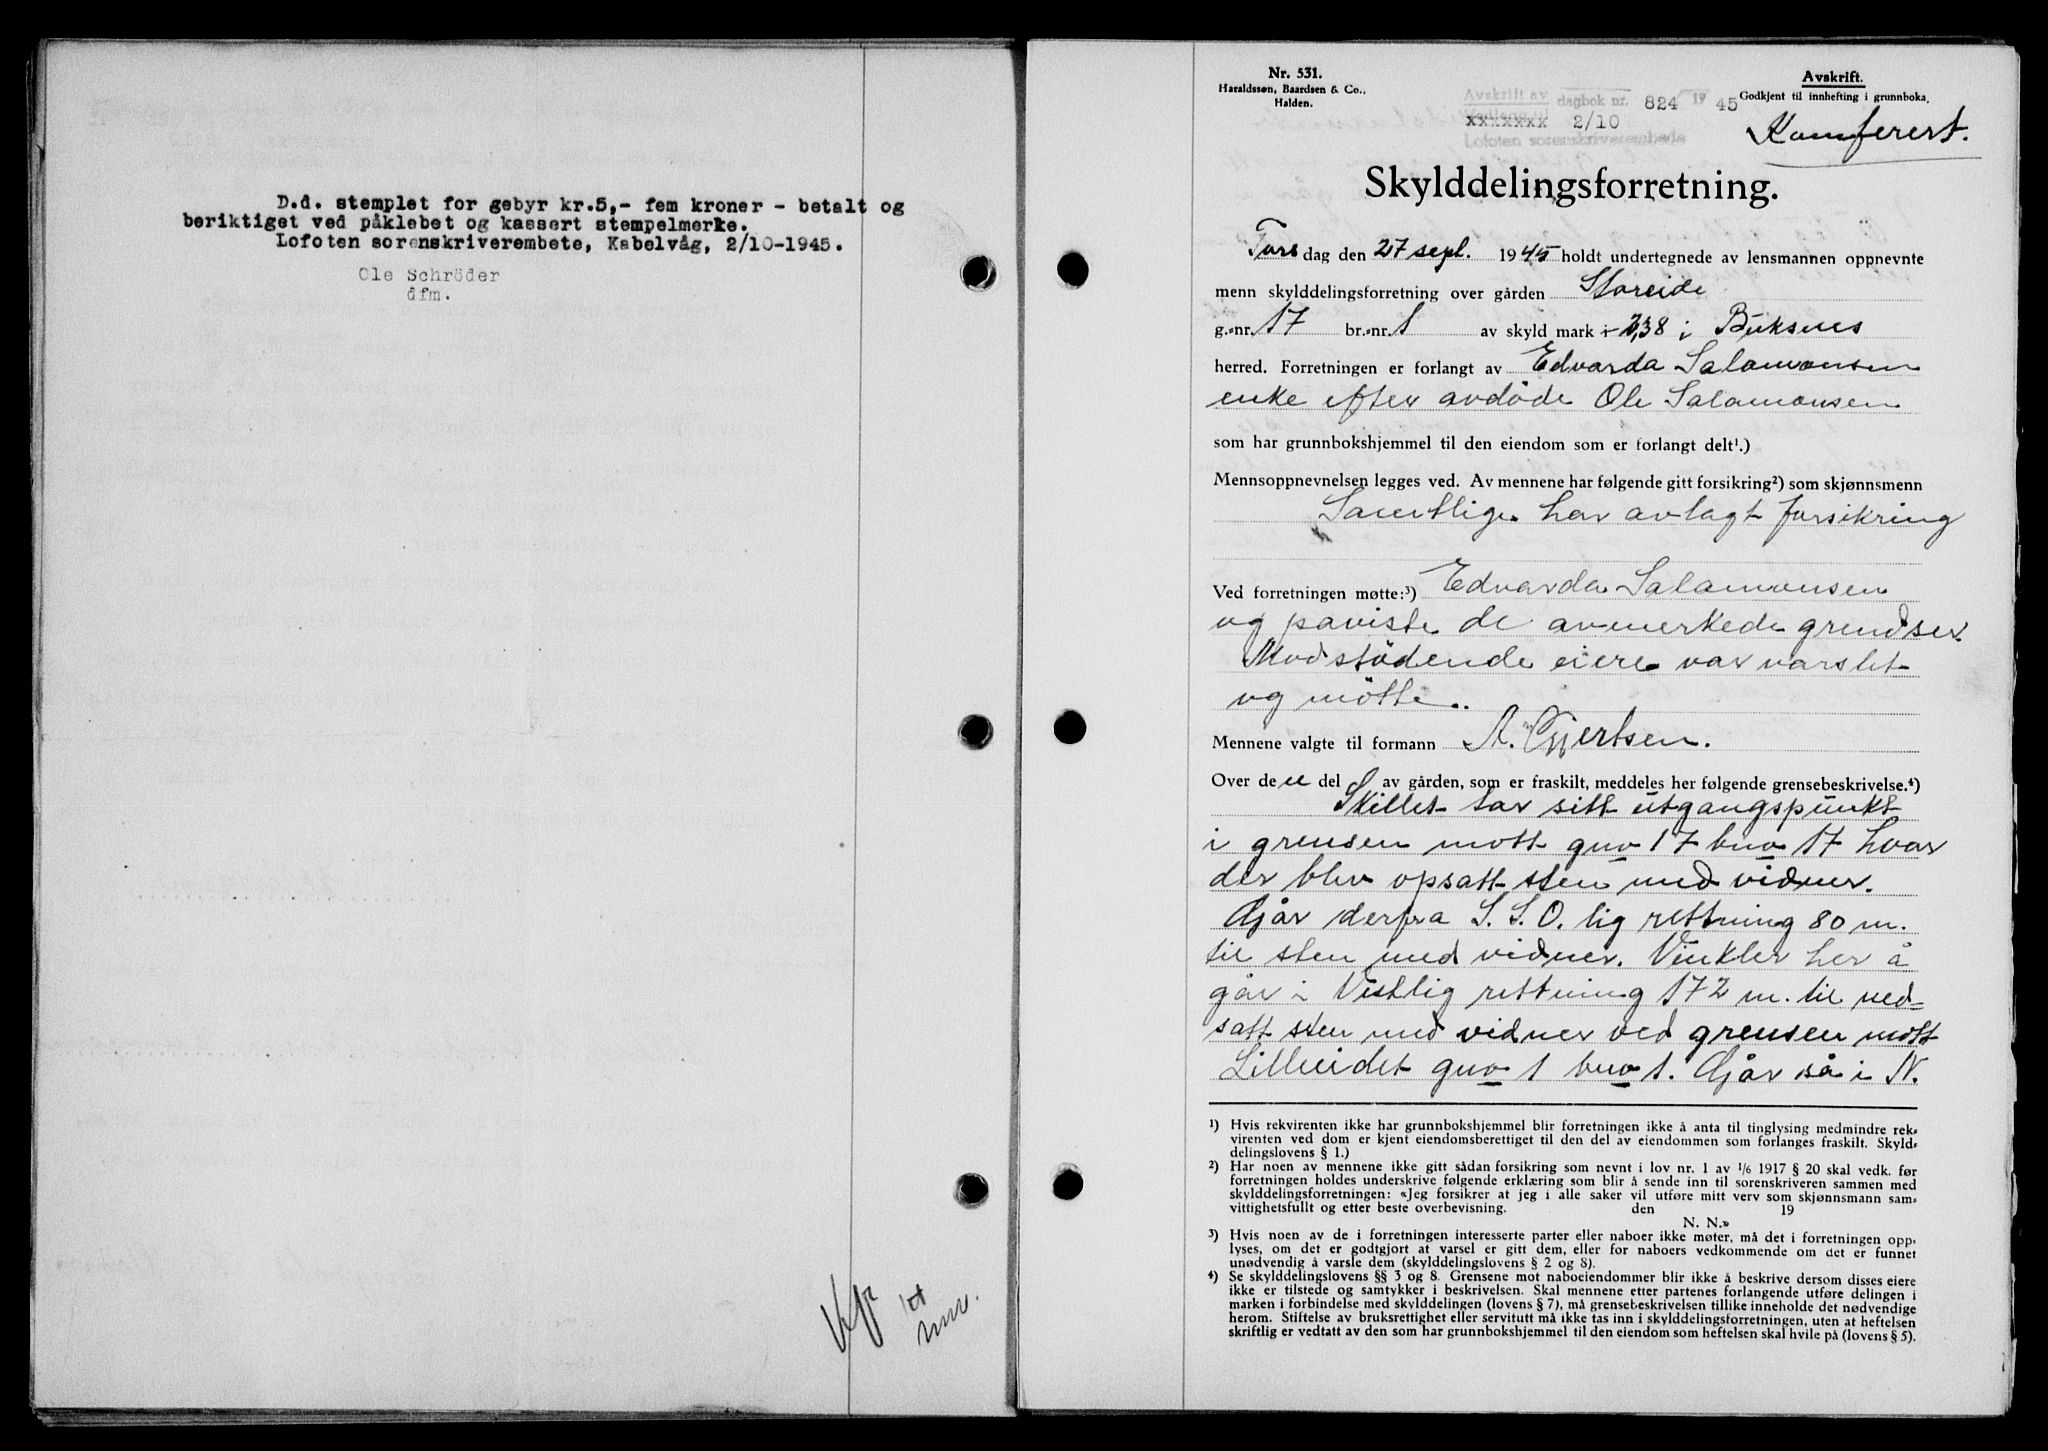 D.d. stemplet for gebyr kr.5,- fem kroner - betalt og
beriktiget ved påklebet og kassert stempelmerke.
Lofoten sorenskriverembete, Kabelvåg, 2/10-1945.
Ole Schröder
dfm.
Nr. 531.
Haraldssøn, Baardsen & Co.,
Halden.
Avskrift av dagbok nr. 824 19 45
xxxxxxx 2/10
Lofoten sorenskriverembede
Avskrift.
Godkjent til innhefting i grunnboka.
Konferert.
Skylddelingsforretning.
Torsdag den 27 sept. 1945 holdt undertegnede av lensmannen oppnevnte
menn skylddelingsforretning over gården Storeide
g.-nr. 17 br.-nr. 1 av skyld mark 2,38 i Buksnes
herred. Forretningen er forlangt av Edvarda Salamonsen
enke efter avdöde Ole Salamonsen
som har grunnbokshjemmel til den eiendom som er forlangt delt¹.)
Mennsoppnevnelsen legges ved. Av mennene har følgende gitt forsikring²) som skjønnsmenn
Samtlige har avlagt forsikring
Ved forretningen møtte:³) Edvarda Salamonsen
og paviste de avmerkede grendser.
Modstödende eiere var varslet
og mötte.
Mennene valgte til formann A. Gjertsen.
Over den del av gården, som er fraskilt, meddeles her følgende grensebeskrivelse.⁴)
Skillet tar sitt utgangspunkt
i grensen mott gno 17 bno 17 hvor
der blev opsatt sten med vidner.
Går derfra S.S.O. lig rettning 80 m.
til sten med vidner. Vinkler her å
går i Vestlig rettning 172 m. til ned-
satt sten med vidner ved grensen mott
Lilleeidet gno 1 bno 1. Går så i N.
1) Hvis rekvirenten ikke har grunnbokshjemmel blir forretningen ikke å anta til tinglysing medmindre rek-
virenten ved dom er kjent eiendomsberettiget til den del av eiendommen som forlanges fraskilt. Skyld-
delingslovens § 1.)
2) Har noen av mennene ikke gitt sådan forsikring som nevnt i lov nr. 1 av 1/6 1917 § 20 skal vedk. før
forretningen holdes underskrive følgende erklæring som blir å sende inn til sorenskriveren sammen med
skylddelingsforretningen: «Jeg forsikrer at jeg i alle saker vil utføre mitt verv som skjønnsmann sam-
vittighetsfullt og etter beste overbevisning. den 19
N. N.»
3) Hvis noen av de i forretningen interesserte parter eller naboer ikke møter, må det i forretningen opp-
lyses, om det er godtgjort at varsel er gitt dem, eller for naboers vedkommende om det er funnet
unødvendig å varsle dem (skylddelingslovens § 2 og 8).
4) Se skylddelingslovens §§ 3 og 8. Grensene mot naboeiendommer blir ikke å beskrive dersom disses eiere
ikke er tilstede og samtykker i beskrivelsen. Skal mennene etter partenes forlangende utføre delingen i
marken i forbindelse med skylddelingen (lovens § 7), må grensebeskrivelsen tillike inneholde det nødvendige
herom. Stiftelse av bruksrettighet eller servitutt må ikke tas inn i skylddelingsforretningen, uten at heftelsen
skriftlig er vedtatt av den som har grunnbokshjemmel til den eiendom som heftelsen skal hvile på (lovens § 5).